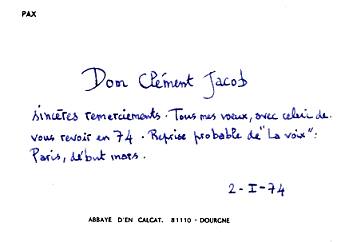 PAX
Dom Clément Jacob
sincères remerciements. Tous mes vœux, avec celui de
vous revoir en 74. Reprise probable de "La voix":
Paris, début mars.
2-I-74
ABBAYE D'EN CALCAT. 81110 - DOURGNE